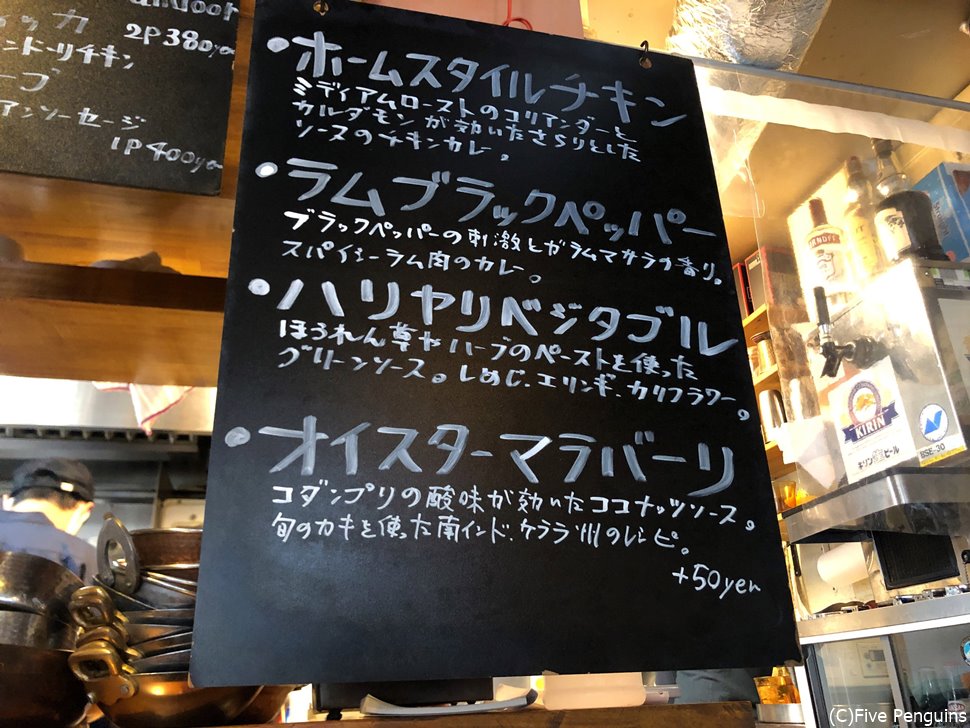 andoor
ィッカ 2P380yen
ンドーリチキン
ーブ
アンソーセージ
1P400yen
・ホームスタイルチキン
ミディアムローストのコリアンダーと
カルダモンが効いたさらりとした
ソースのチキンカレー。
・ラムブラックペッパー
ブラックペッパーの刺激とガラムマサラの香り。
スパイシーラム肉のカレー。
・ハリヤリベジタブル
ほうれん草やハーブのペーストを使った
グリーンソース。しめじ、エリンギ、カリフラワー。
・オイスターマラバーリ
コダンプリの酸味が効いたココナッツソース。
旬のカキを使った南インド、ケララ州のレシピ。
+50yen
SMIRNOFF
KIRIN
キリン生ビール
BSE-30
(C)Five Penguins